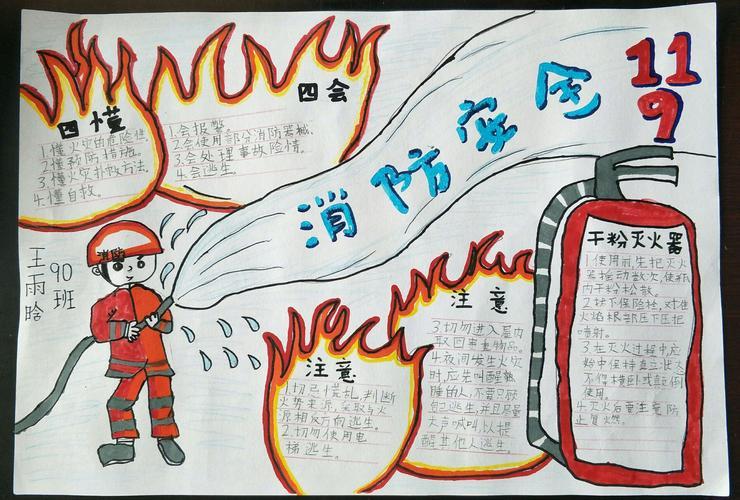 消防安全
119
四懂
1.懂火灾的危险性.
2.懂预防措施.
3.懂火灾扑救方法.
4.懂自救.
四会
1.会报警
2.会使用部分消防器械.
3.会处理事故险情.
4.会逃生.
王雨晗
90班
消防
注意
1.切忌慌乱,判断
火势来源,采取与火
源相反方向逃生.
2.切勿使用电
梯逃生.
注意
3.切勿进入屋内
取回贵重物品.
4.夜间发生火灾
时,应先叫醒熟
睡的人,不要只顾
自己逃生,并且尽量
大声喊叫,以提
醒其他人逃生.
干粉灭火器
1.使用前,先把灭火
器摇动数次,使瓶
内干粉松散.
2.拔下保险栓,对准
火焰根部压下压把
喷射.
3.在灭火过程中,应
始中保持直立状态
不得横卧或颠倒
使用.
4.灭火后要注意防
止复燃.